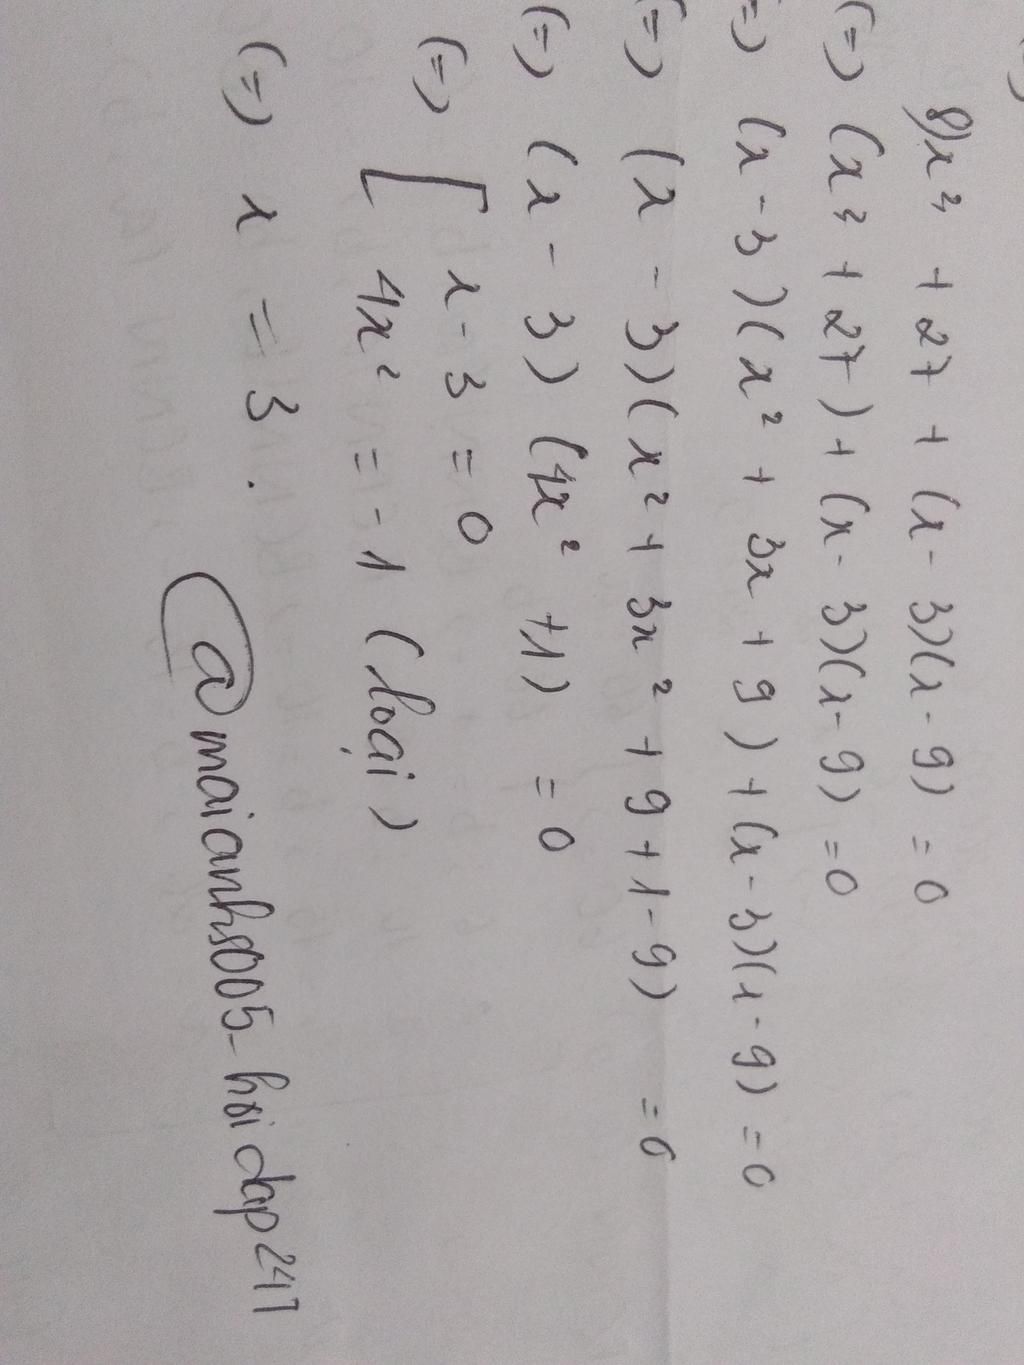 8) x³ + 27 + (x - 3)(x - 9) = 0
(=) (x³ + 27) + (x - 3)(x - 9) = 0
(=) (x - 3)(x² + 3x + 9) + (x - 3)(x - 9) = 0
(=) (x - 3)(x² + 3x² + 9 + 1 - 9) = 0
(=) (x - 3)(4x² + 1) = 0
(=) [ x - 3 = 0
4x² = - 1 (loại)
(=) x = 3.
@maianhs005-hoidap247